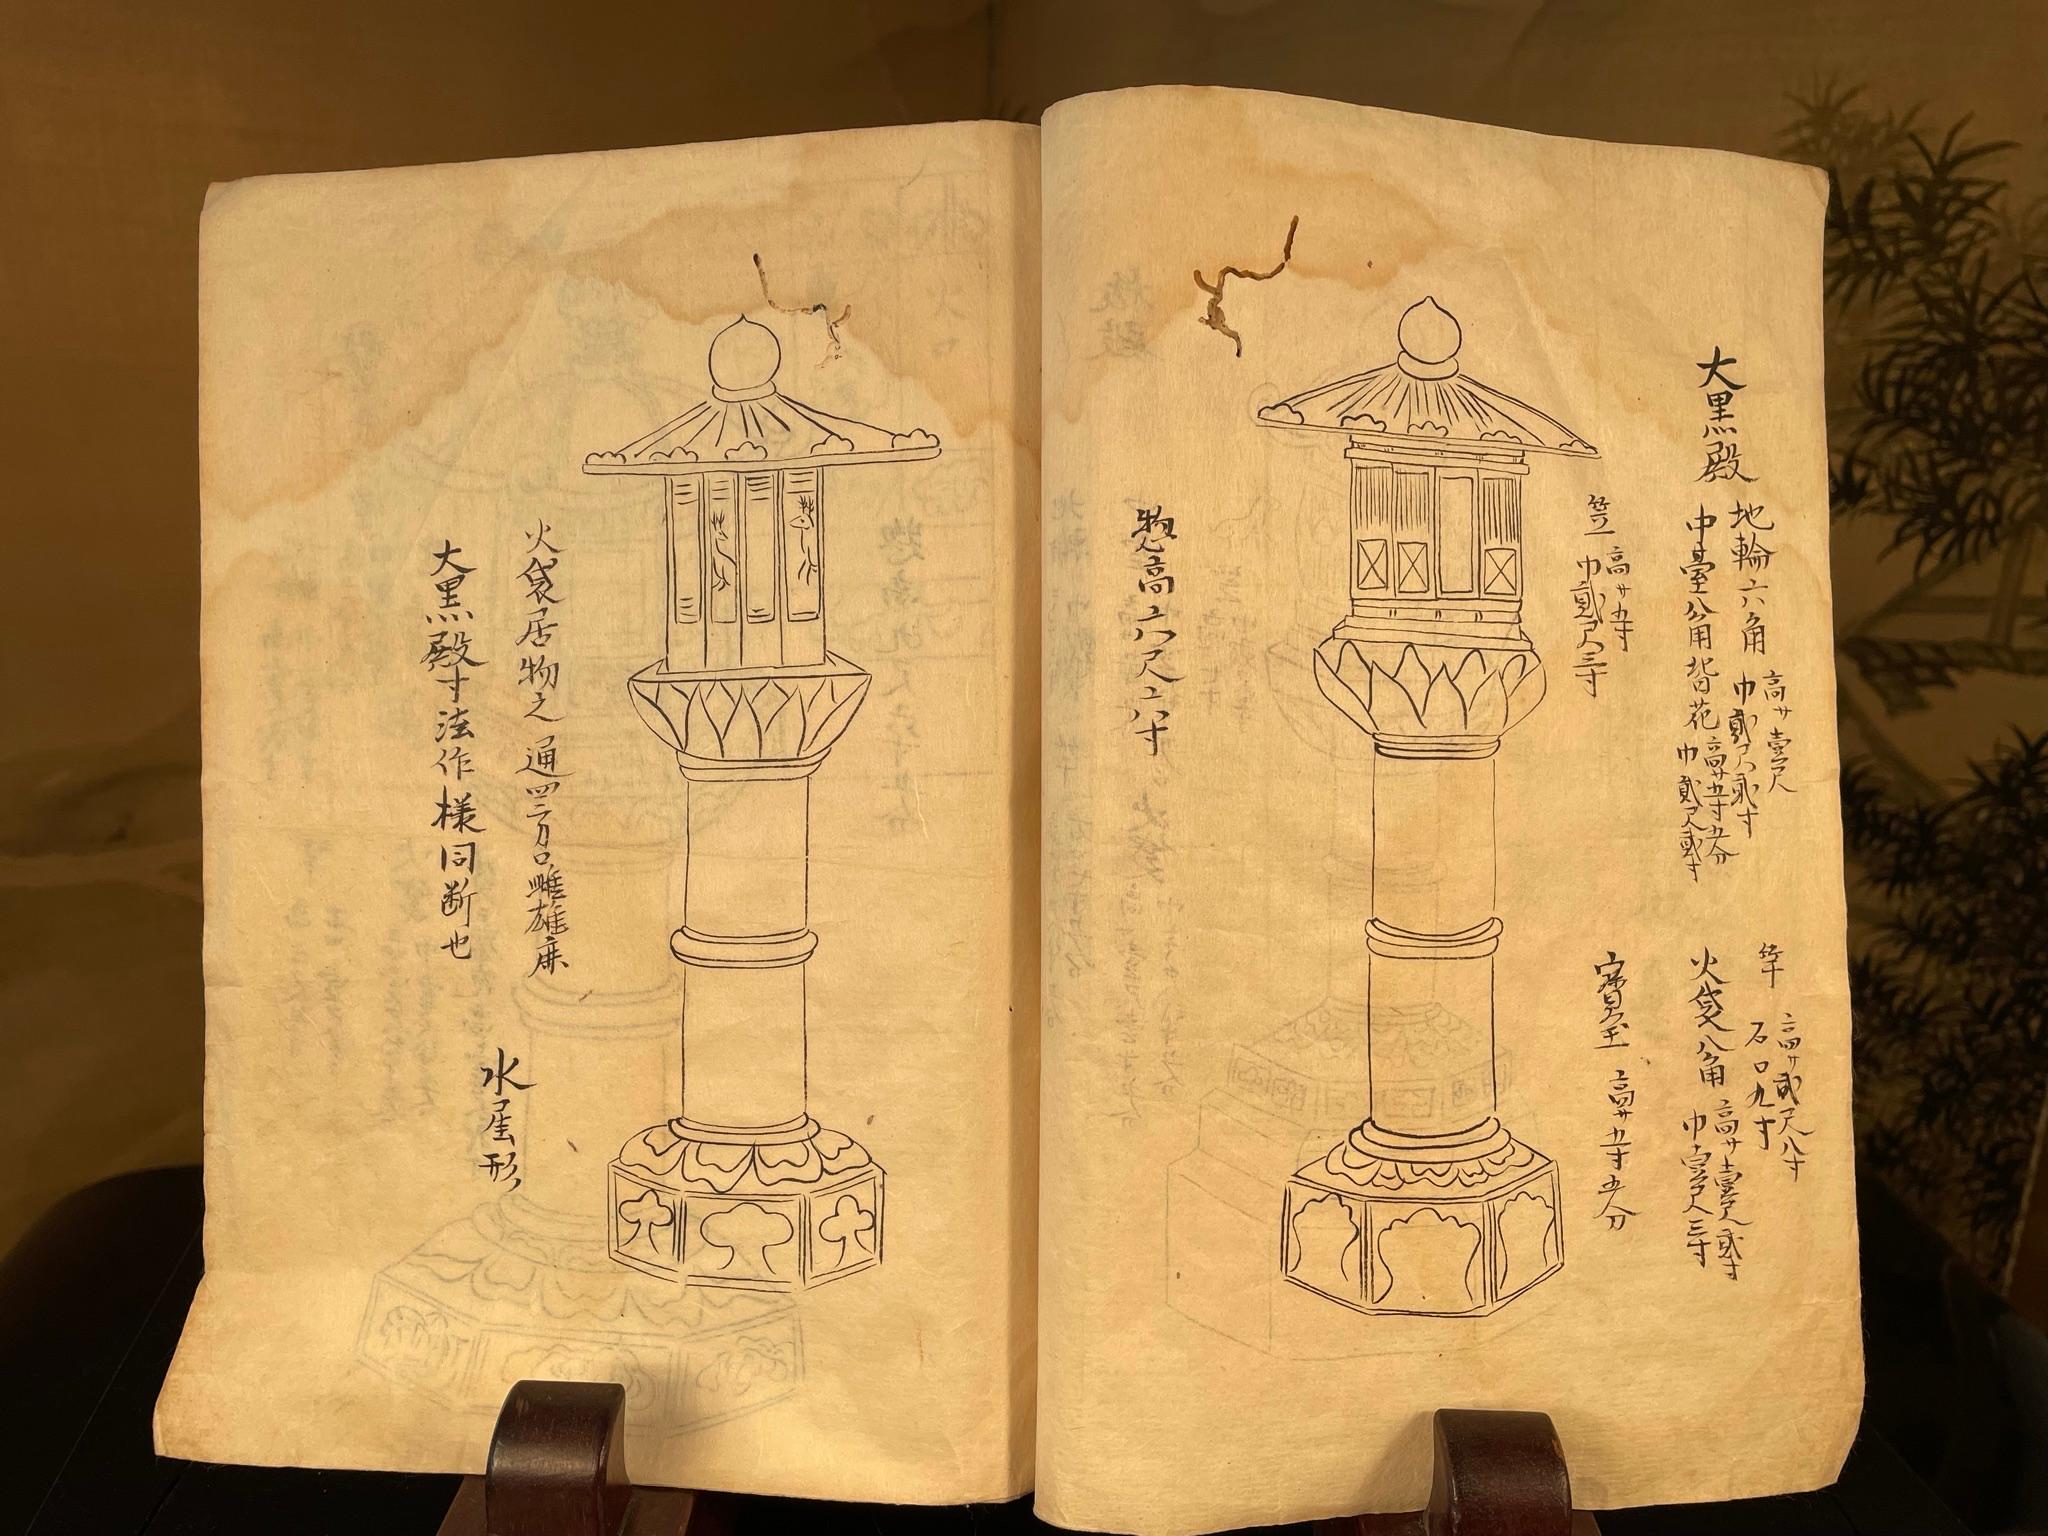 大黒殿
地輪六角
高サ壹尺
巾貮尺貮寸
中臺八角皆花
高サ五寸五分
巾貮尺貮寸
竿
高サ貮尺八寸
石口九寸
火袋八角
高サ壹尺貮寸
巾壹尺三寸
笠
高サ五寸
巾貮尺三寸
寳玉
高サ五寸五分
惣高六尺六寸
火袋居物之通四方口雌雄鹿
大黒殿寸法作様同断也
水屋形